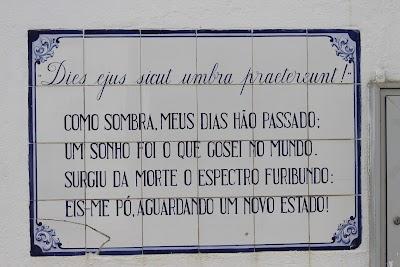 "Dies ejus sicut umbra praetereunt!"
COMO SOMBRA, MEUS DIAS HÃO PASSADO;
UM SONHO FOI O QUE GOSEI NO MUNDO.
SURGIU DA MORTE O ESPECTRO FURIBUNDO:
EIS-ME PÓ, AGUARDANDO UM NOVO ESTADO!